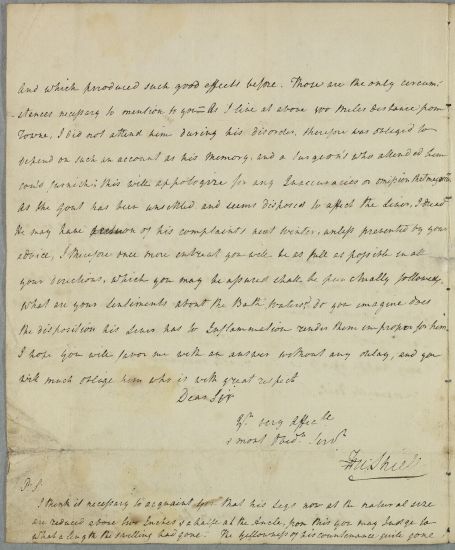 and which produced such good effects before. Those are the only circum-
stances necessary to mention to you = As I live at above 100 Miles distance from
Towne, I did not attend him during his disorder, therefore was obliged to
depend on such an account as his Memory, and a Surgeon's who attended him
could furnish; this will appologize for any Inaccuracies or omission that may
As the gout has been unsettled and seems disposed to affect the Liver, I dread
He may have of his complaints next winter, unless prevented by your
advice, I therefore once more entreat you will be as full as possible in all
your directions, which you may be assured shall be punctually followed,
What are your Sentiments about the Bath Waters? do you imagine does
the disposition his Liver has to Inflammation render them improper for him,
I hope you will favor me with an answer without any delay, and you
will much oblige him who is with great respect
Dear Sir
Yr. very affecte
& most obedt. Servt.
PS
I think it necessary to acquaint you that his Legs now at the natural size
are reduced above two Inches & a half at the Ancle, from this you may Judge to
what a length the swelling had gone. The Yellowness of his countenance quite gone